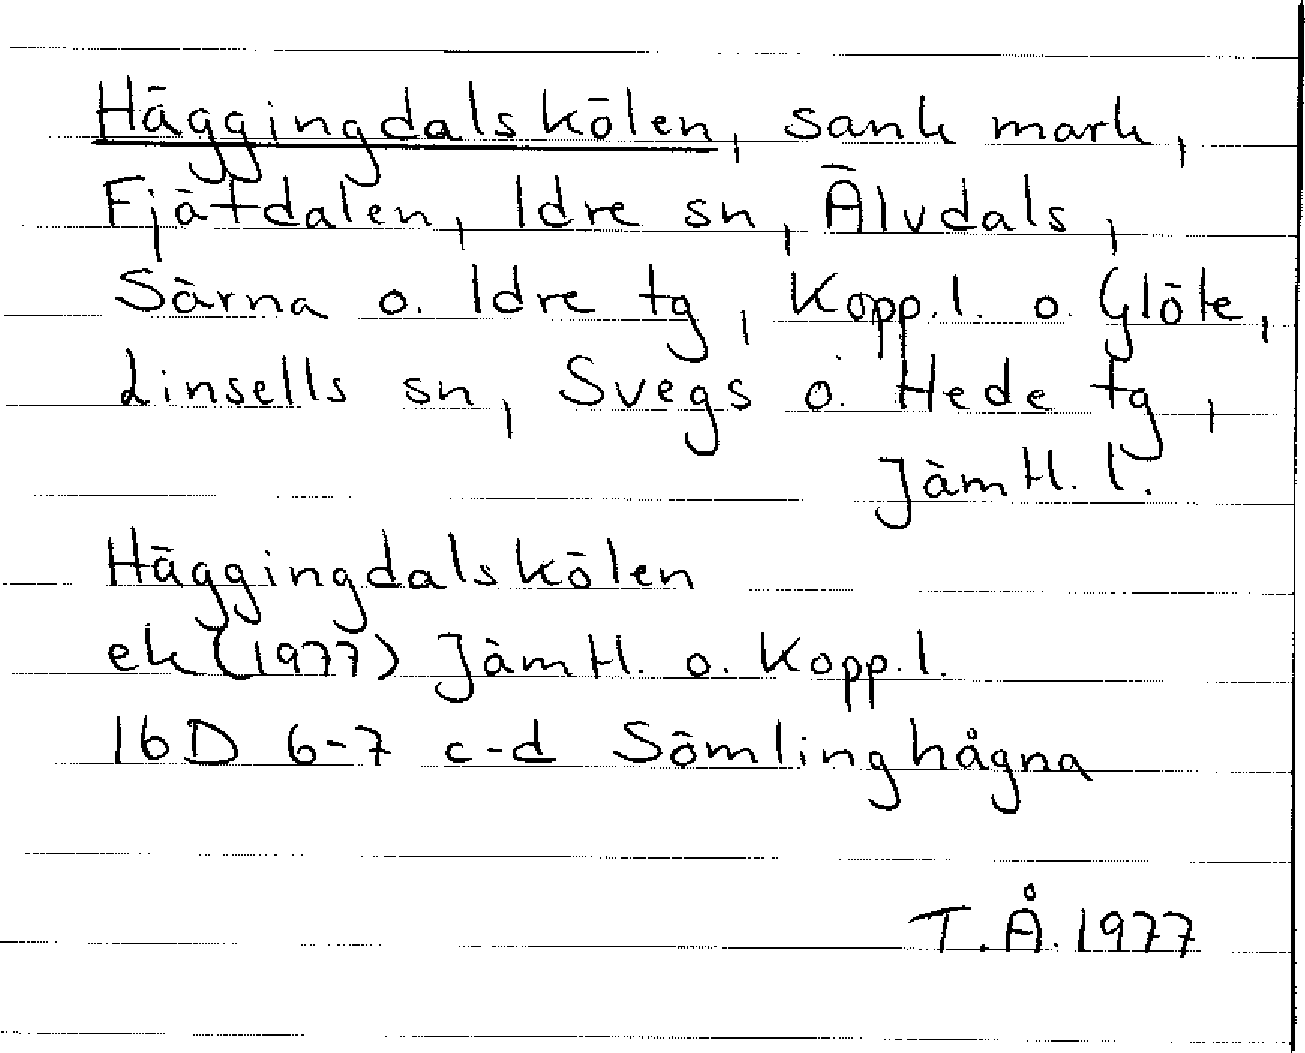 Häggingdalskölen, sank mark,
Fjätdalen, Idre sn, Älvdals,
Särna o. Idre tg, Kopp.l. o. Glöte,
Linsells sn, Svegs o. Hede tg,
Jämtl. l.
Häggingdalskölen
ek (1977) Jämtl. o. Kopp.l.
16D 6-7 c-d Sömlinghågna
T.Å. 1977